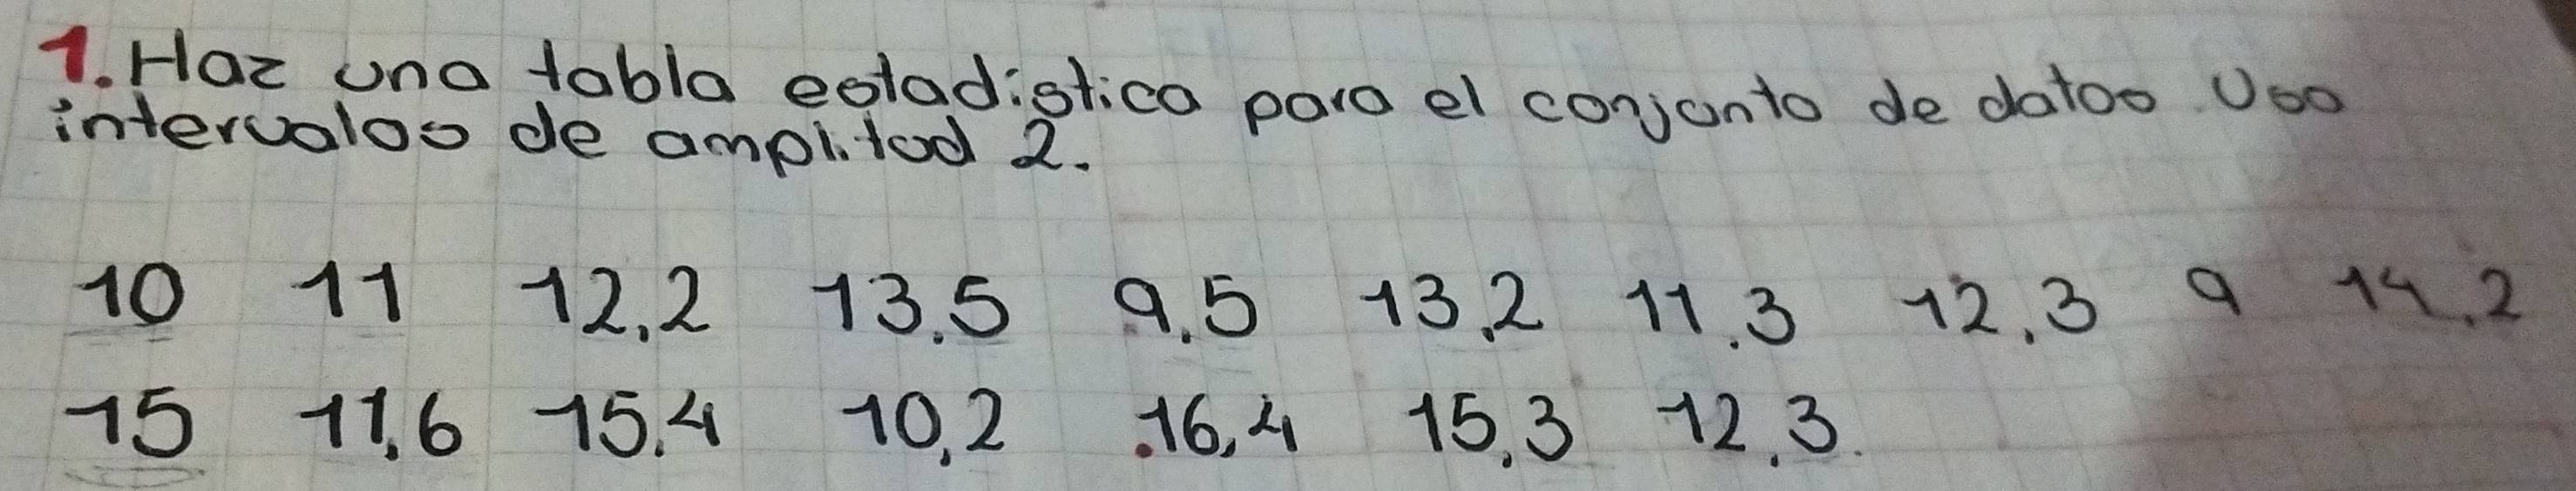 1. Haz una tabla estadistica para el conjunto de datos. Usa
intervalos de amplitud 2.
10 11 12,2 13,5 9,5 13,2 11,3 12,3 9 14,2
15 11,6 15,4 10,2 16,4 15,3 12,3.